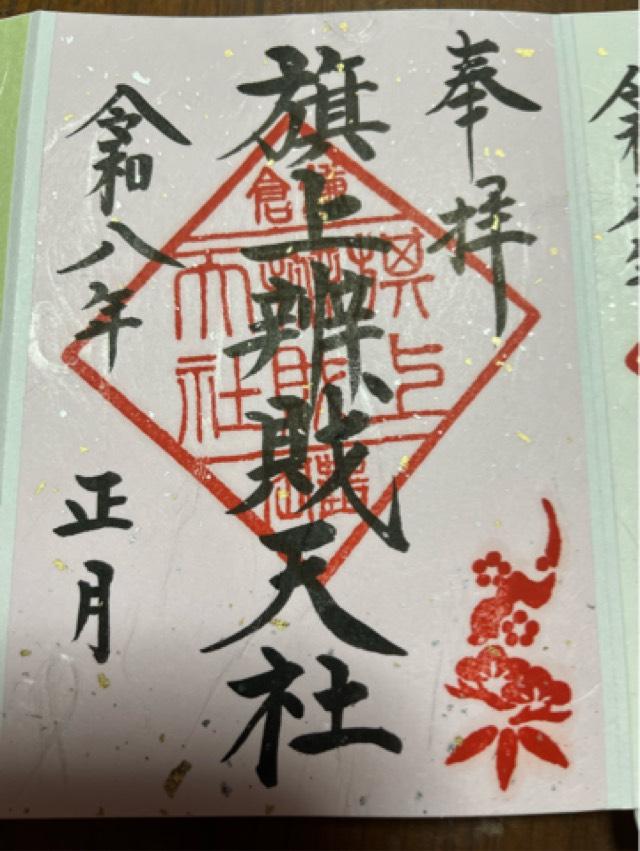 奉拝
旗上辨財天社
令和八年
正月
鎌倉
旗上
辨財
天社
令和八年